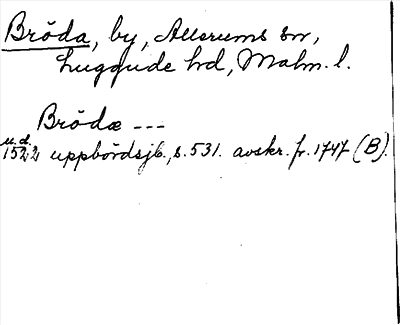 Bröda, by, Allerums sn,
Luggude hd, Malm. l.
Brödæ ---
u.d.
1522 uppbördsjb., s. 531. avskr. fr. 1747 (B).